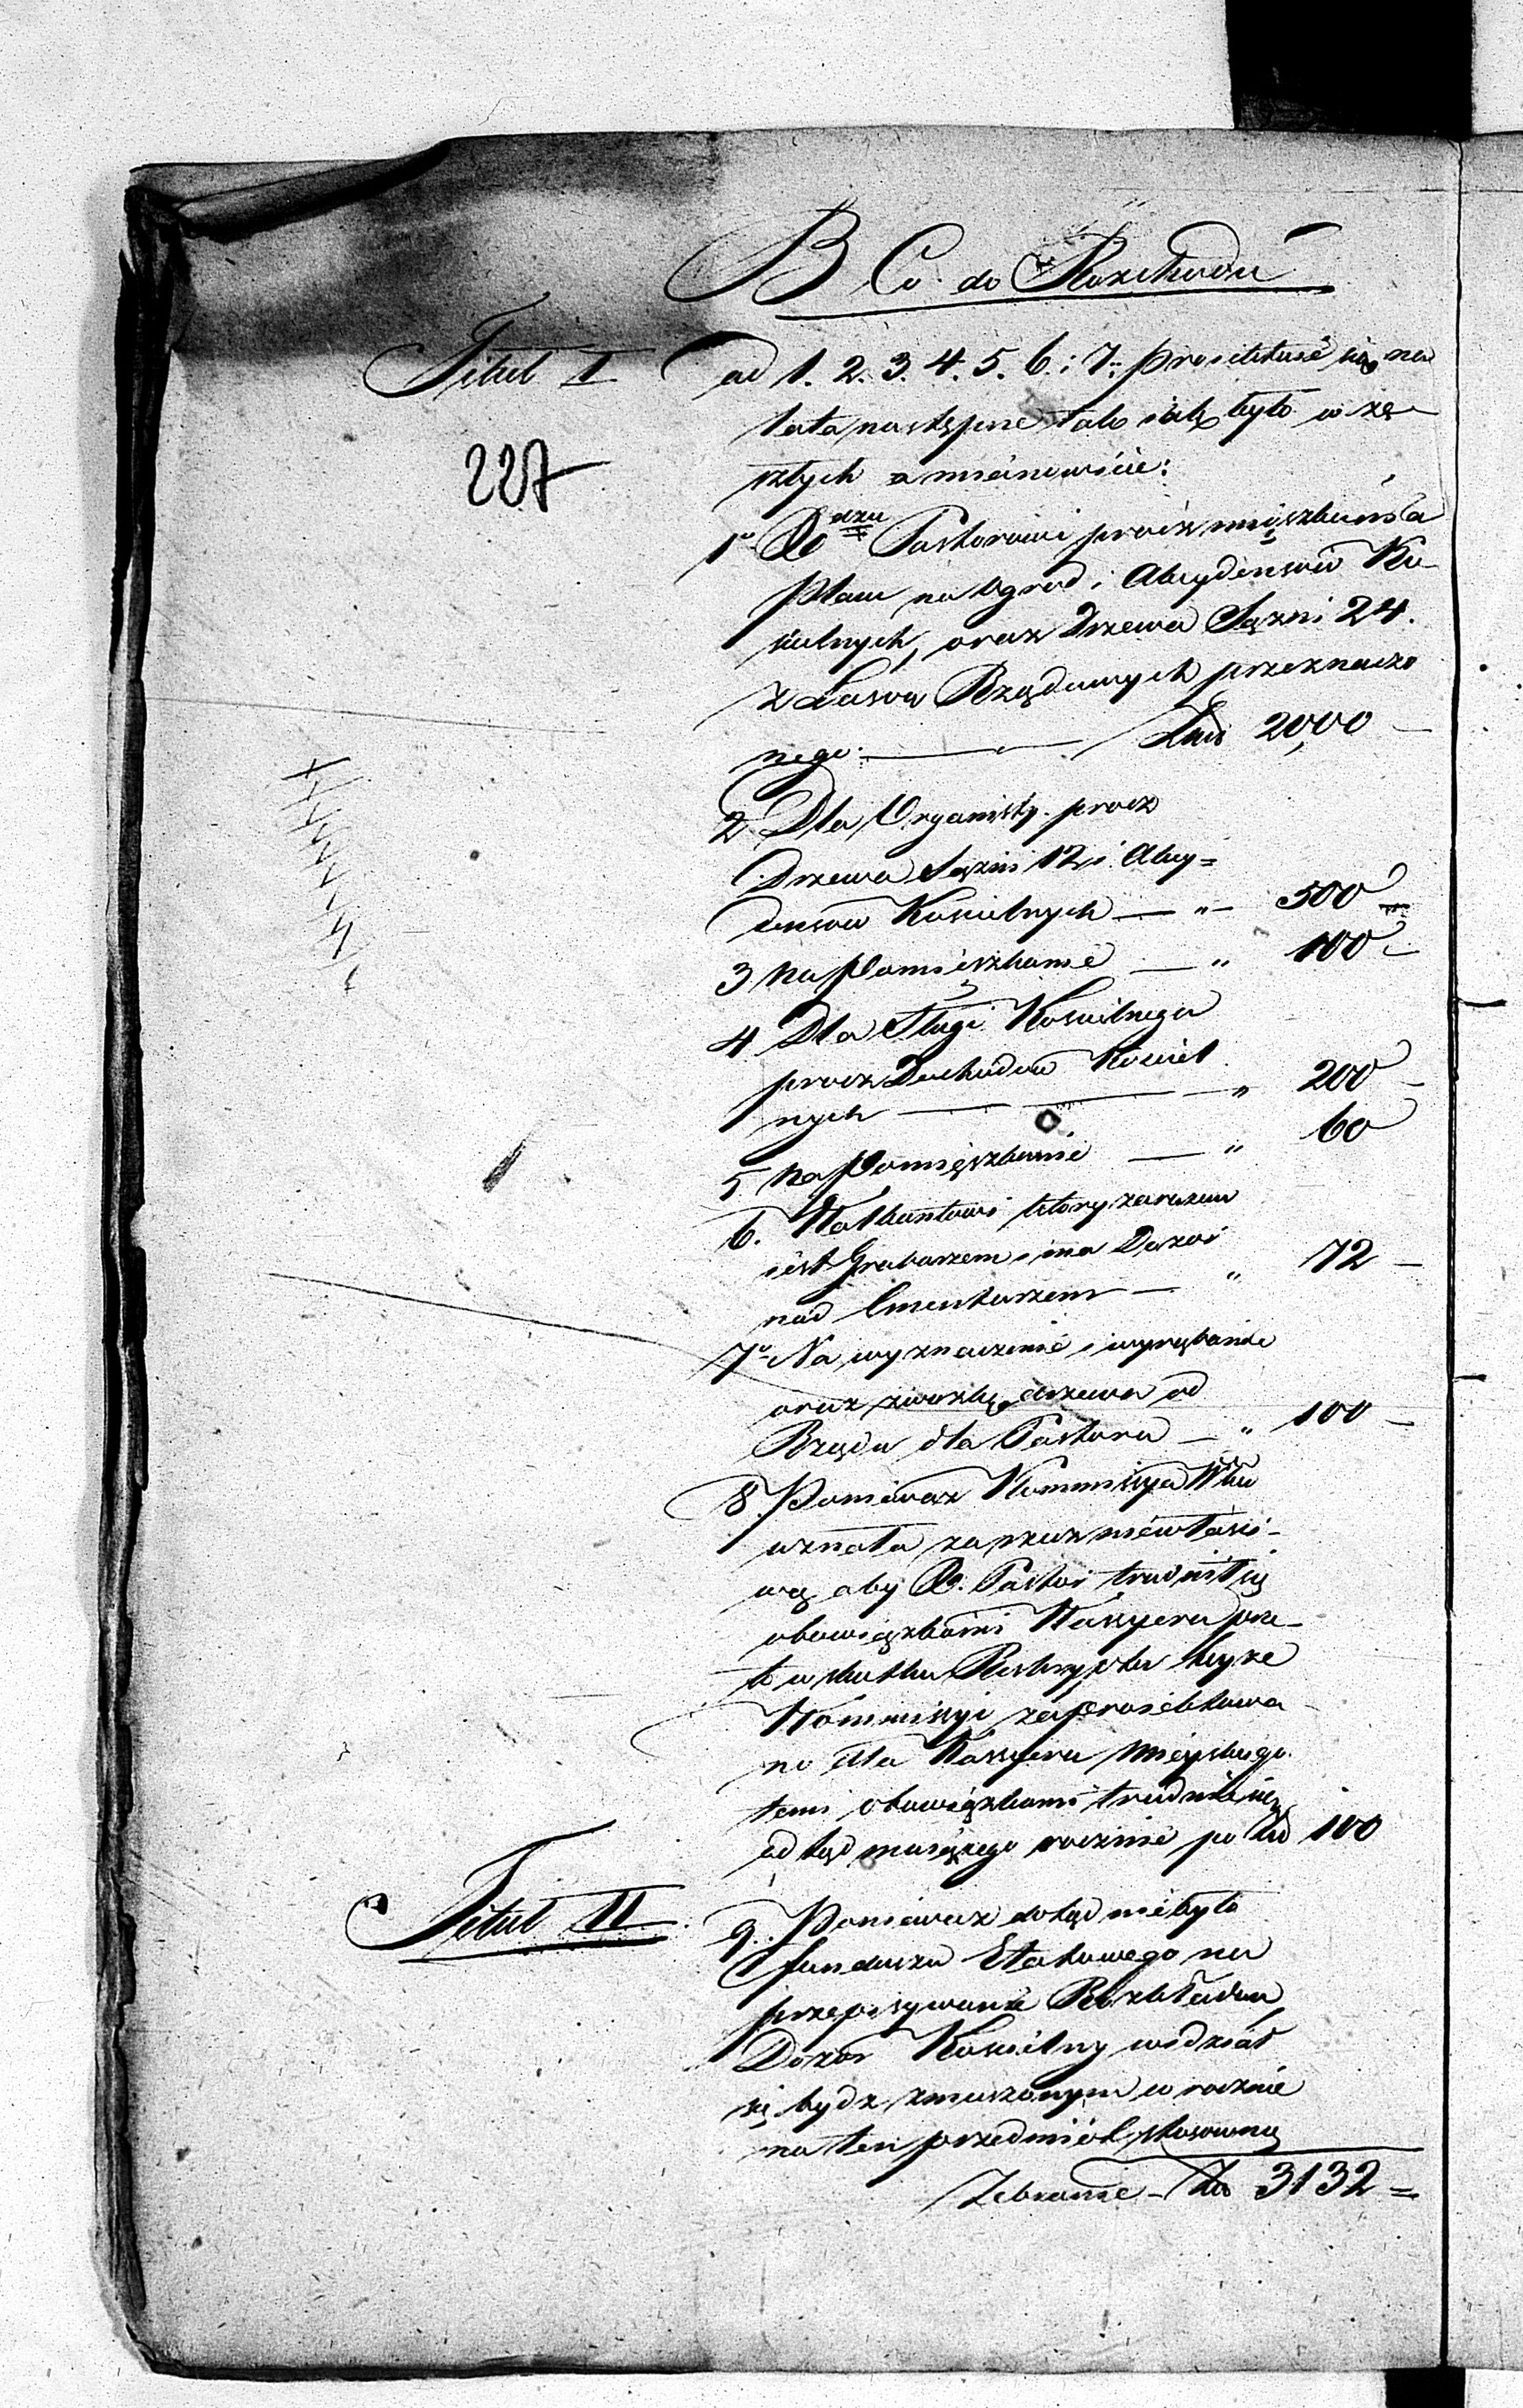 B Co do Rozchodu
Titul I
ad 1. 2. 3. 4. 5. 6. i 7. proiektuie się na
lata następne tak iak było w ze-
szłych a mianowicie:
227
1o Xdzu Pastorowi prócz mieszkania
Placu na Ogród i Akcydensów Ko-
ścielnych, oraz Drzewa Sążni 24.
z Lasów Rządowych przeznaczo
nego. — 2000 —
2 Dla Organisty prócz
Drzewa Sążni 12 i Akcy=
densów Kościelnych — " — 500 —
3 na Pomieszkanie — " 100 —
4 Dla Sługi Kościelnego
prócz Dochodów Kościel
nych — " 200 —
5 na Pomięszkanie — " 60
6. Kalkantowi który zarazem
iest Grabarzem i ma Dozór
nad Cmentarzem — " 72 —
7o Na wyznaczenie i wyrąbanie
oraz zwózkę drzewa od
Rządu dla Pastora — " 100 —
8. Ponieważ Kommissya Wdka
uznała za rzecz niewłaści-
wą aby X. Pastor trudnił się
obowiązkami Kassyera prze-
to w skutku Reskryptu teyże
Kommissyi zaproiektowa-
no dla Kassyera Mieyskiego
temi obowiązkami trudnić się
odtąd maiącego rocznie po 100
Titul II
9. Ponieważ dotąd nie było
funduszu Etatowego na
przepisywanie Rozkładów
Dozór Kościelny widział
się bydź zmuszonym corocznie
na ten przedmiot stosowną
Zebranie — 3132 =